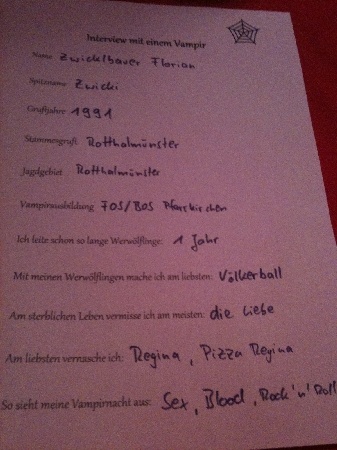 Interview mit einem Vampir
Name Zwicklbauer Florian
Spitzname Zwicki
Gruftjahre 1991
Stammesgruft Rotthalmünster
Jagdgebiet Rotthalmünster
Vampirausbildung FOS/BOS Pfarrkirchen
Ich leite schon so lange Werwölflinge: 1 Jahr
Mit meinen Werwölflingen mache ich am liebsten: Völkerball
Am sterblichen Leben vermisse ich am meisten: die Liebe
Am liebsten vernasche ich: Regina, Pizza Regina
So sieht meine Vampirnacht aus: Sex, Blood, Rock'n'Roll